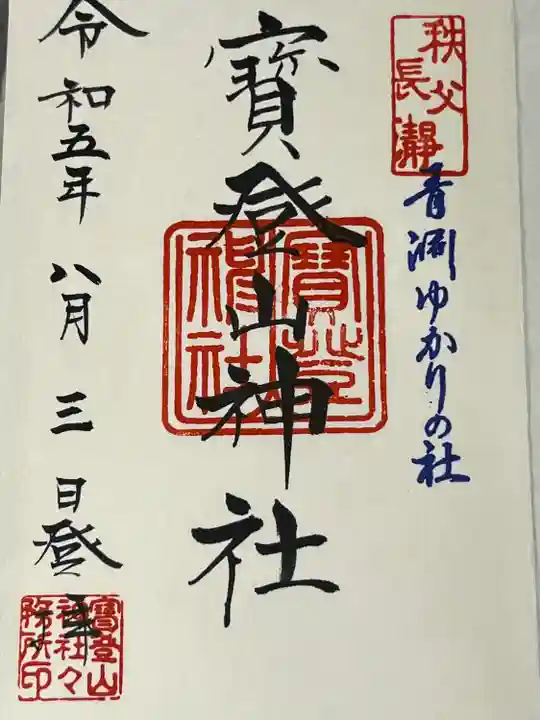 秩父
長瀞
青渊ゆかりの社
寳登山神社
寳登
山神社
令和五年八月三日登拜
寳登山
神社々
務所印